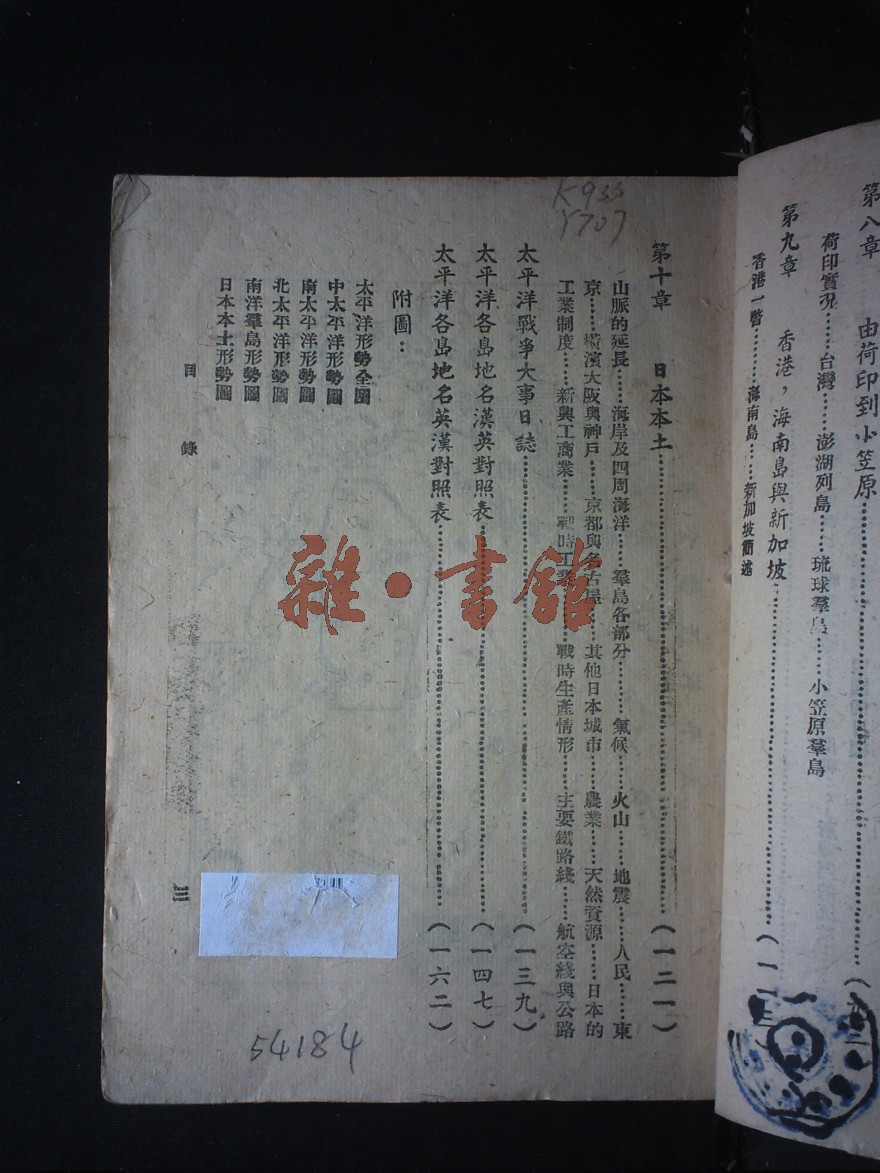 第八章　由荷印到小笠原
荷印實況……台灣……澎湖列島……琉球羣島……小笠原羣島
第九章　香港，海南島與新加坡
香港一瞥……海南島……新加坡簡述
K933
Y707
第十章　日本本土……(一二一)
山脈的延長……海岸及四周海洋……羣島各部分……氣候……火山……地震……人民……東
京……橫濱大阪與神戶……京都與名古屋……其他日本城市……農業……天然資源……日本的
工業制度……新興工商業……戰時工業……戰時生產情形……主要鐵路綫……航空綫與公路
太平洋戰爭大事日誌……(一三九)
太平洋各島地名漢英對照表……(一四七)
太平洋各島地名英漢對照表……(一六二)
附圖：
太平洋形勢全圖
中太平洋形勢圖
南太平洋形勢圖
北太平洋形勢圖
南洋羣島形勢圖
日本本土形勢圖
目錄
三
54184
雜·書館